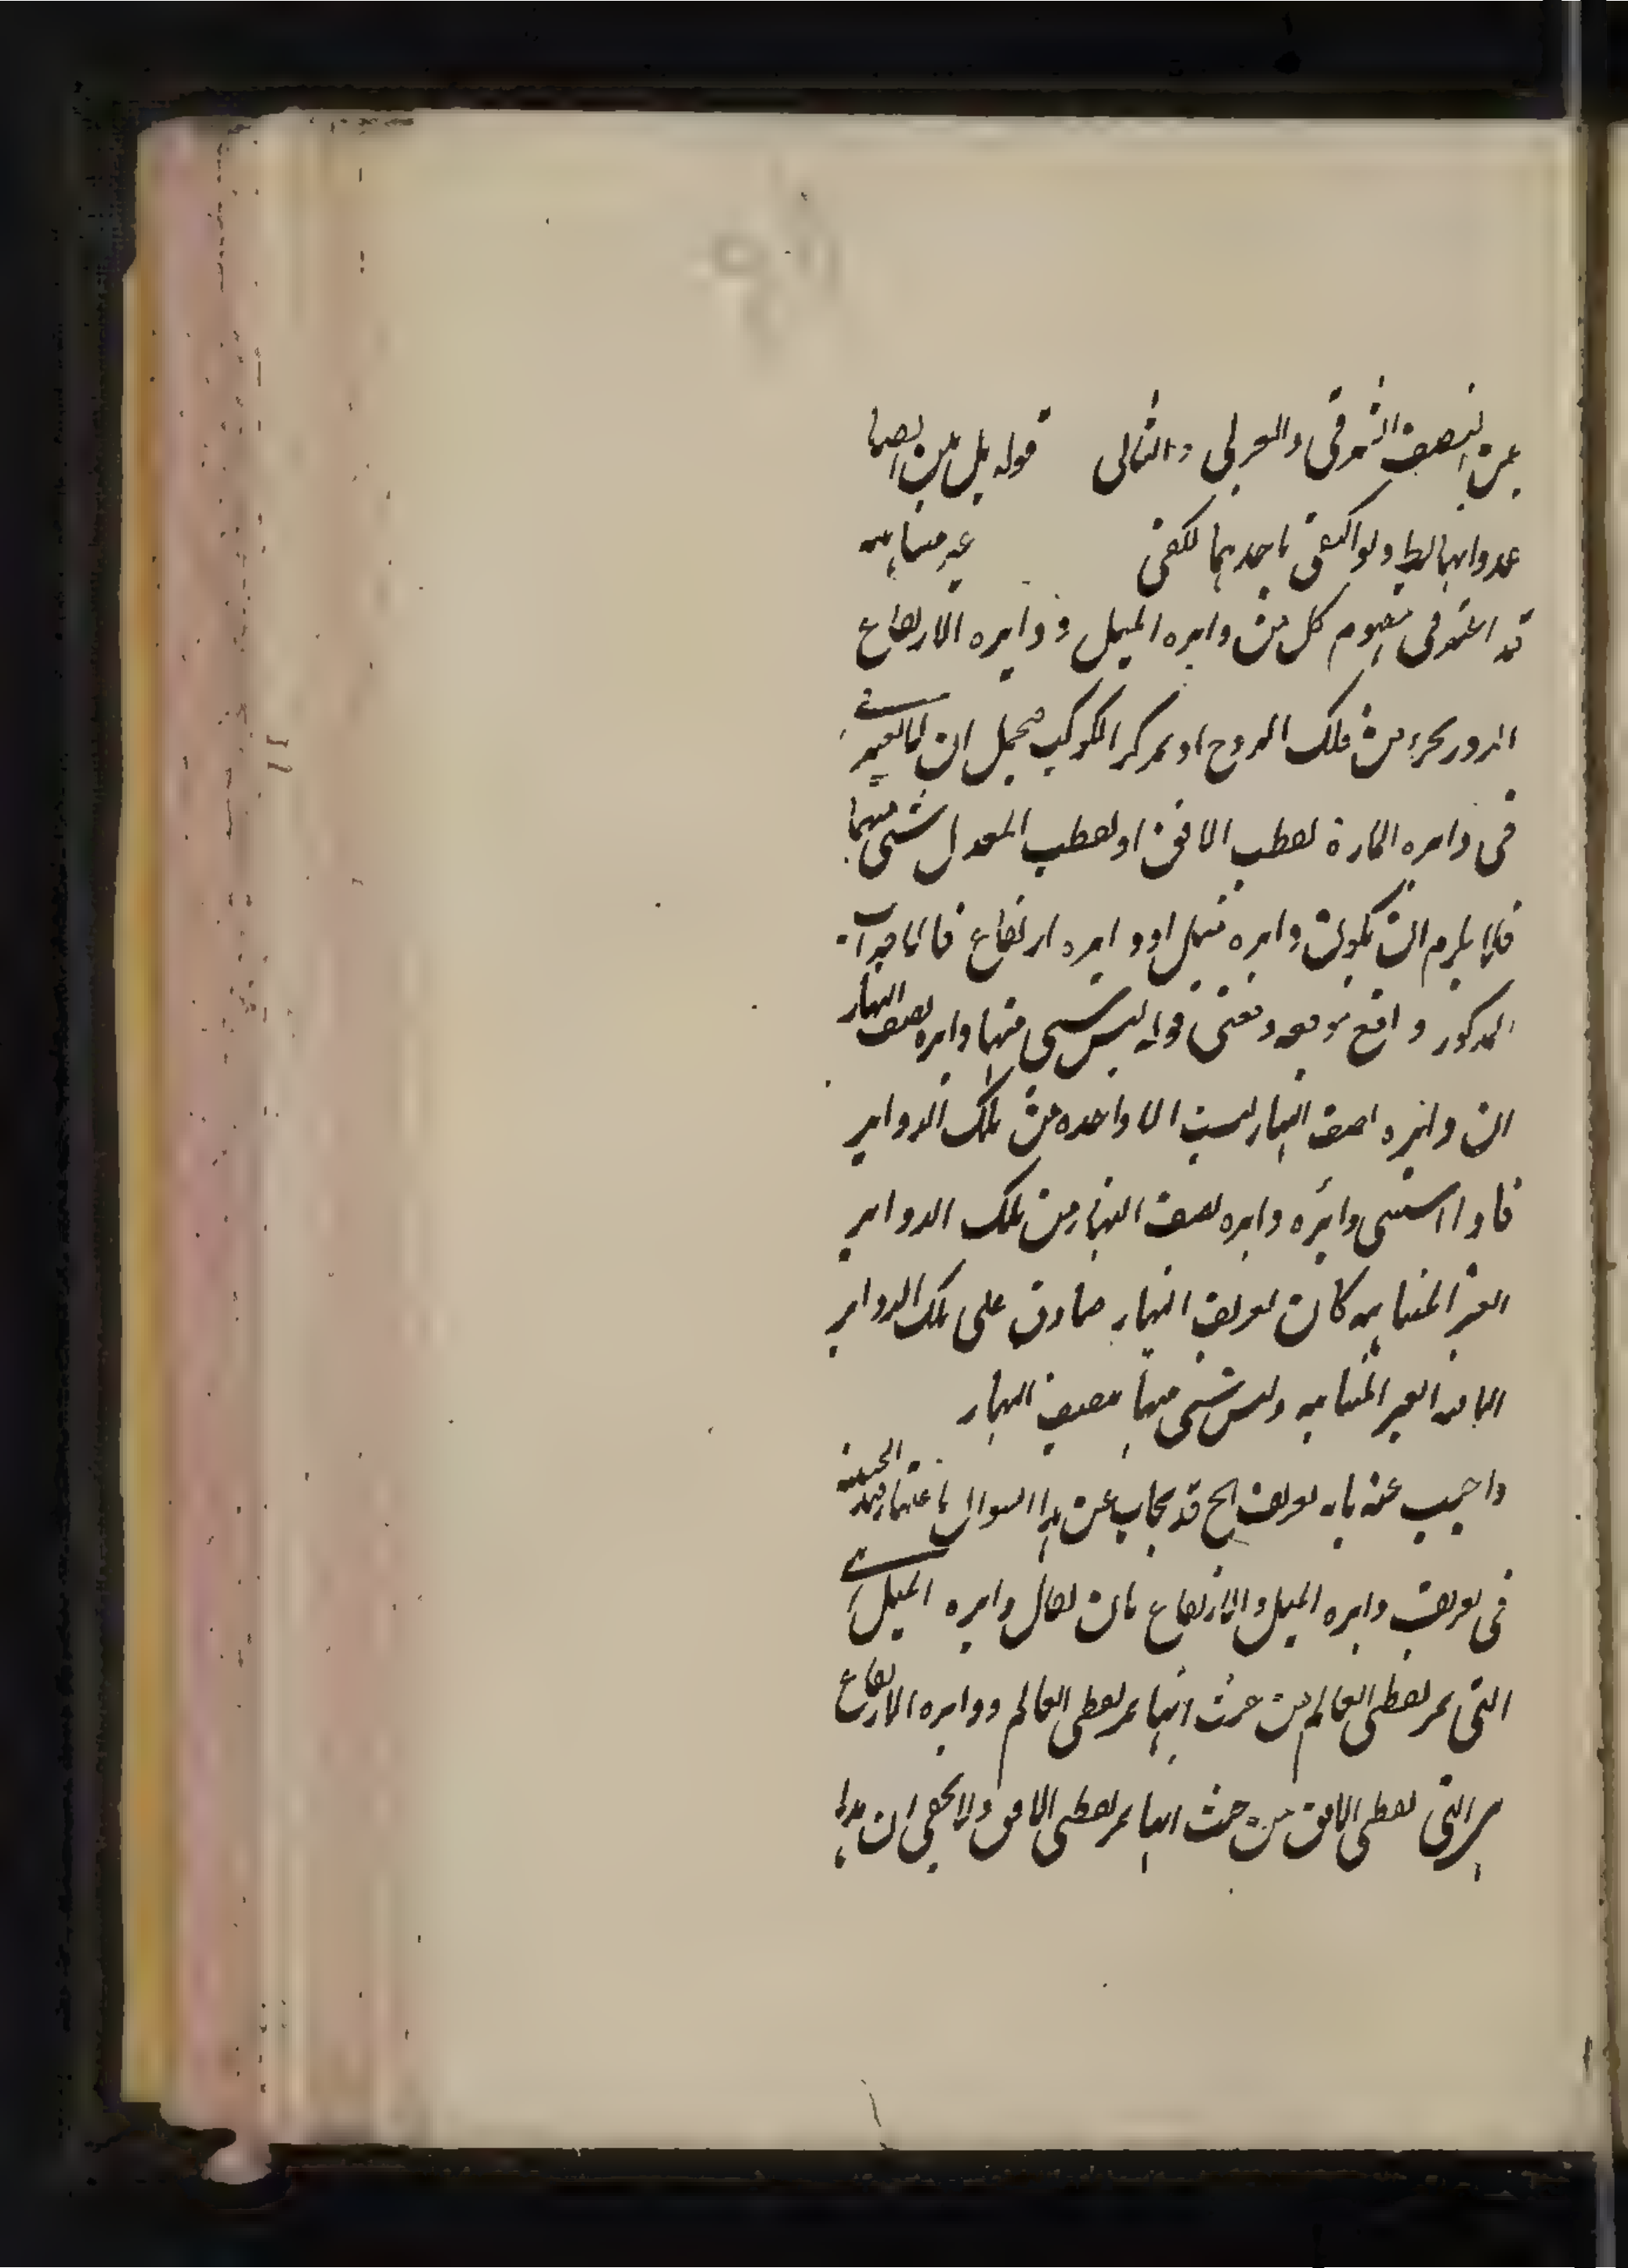 بين النصف الشرقي والغربي والثاني قوله بل بين النصفا
عدوانهما لفظ ولو اكتفى باحدهما لكفى غير متناهيه
قد اعتبر في مفهوم كل من دايره الميل ودايره الارتفاع
المرور بجزء من فلك البروج او بمركز الكوكب فيحتمل ان لا يعتبر
في دايره المارة بقطب الافق او بقطب المعدل شي منهما
فلا يلزم ان يكون دايره ميل او دايره ارتفاع فالجواب
المذكور واقع موقعه ومعنى قوله ليس شي منها دايره نصف النهار
ان دايره نصف النهار ليست الا واحده من تلك الدواير
فاذا استثنى دائره دايره نصف النهار من تلك الدواير
الغير المتناهيه كان تعريف النهار صادق على تلك الدواير
الباقيه الغير المتناهيه وليس شي منها بنصف النهار
واجيب عنه بانه تعريف الخ قد يجاب عن هذا السوال باعتبار قيد الحيثيه
في تعريف دايره الميل والارتفاع بان يقال دايره الميل
التي تمر بقطبي العالم من حيث انها تمر بقطبي العالم ودايره الارتفاع
هي التي بقطبي الافق من حيث انها تمر بقطبي الافق ولا يخفى ان هذا